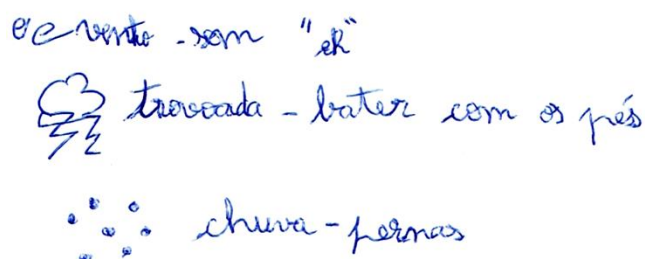 vento - som "ch"
trovoada - bater com os pés
chuva - pernas